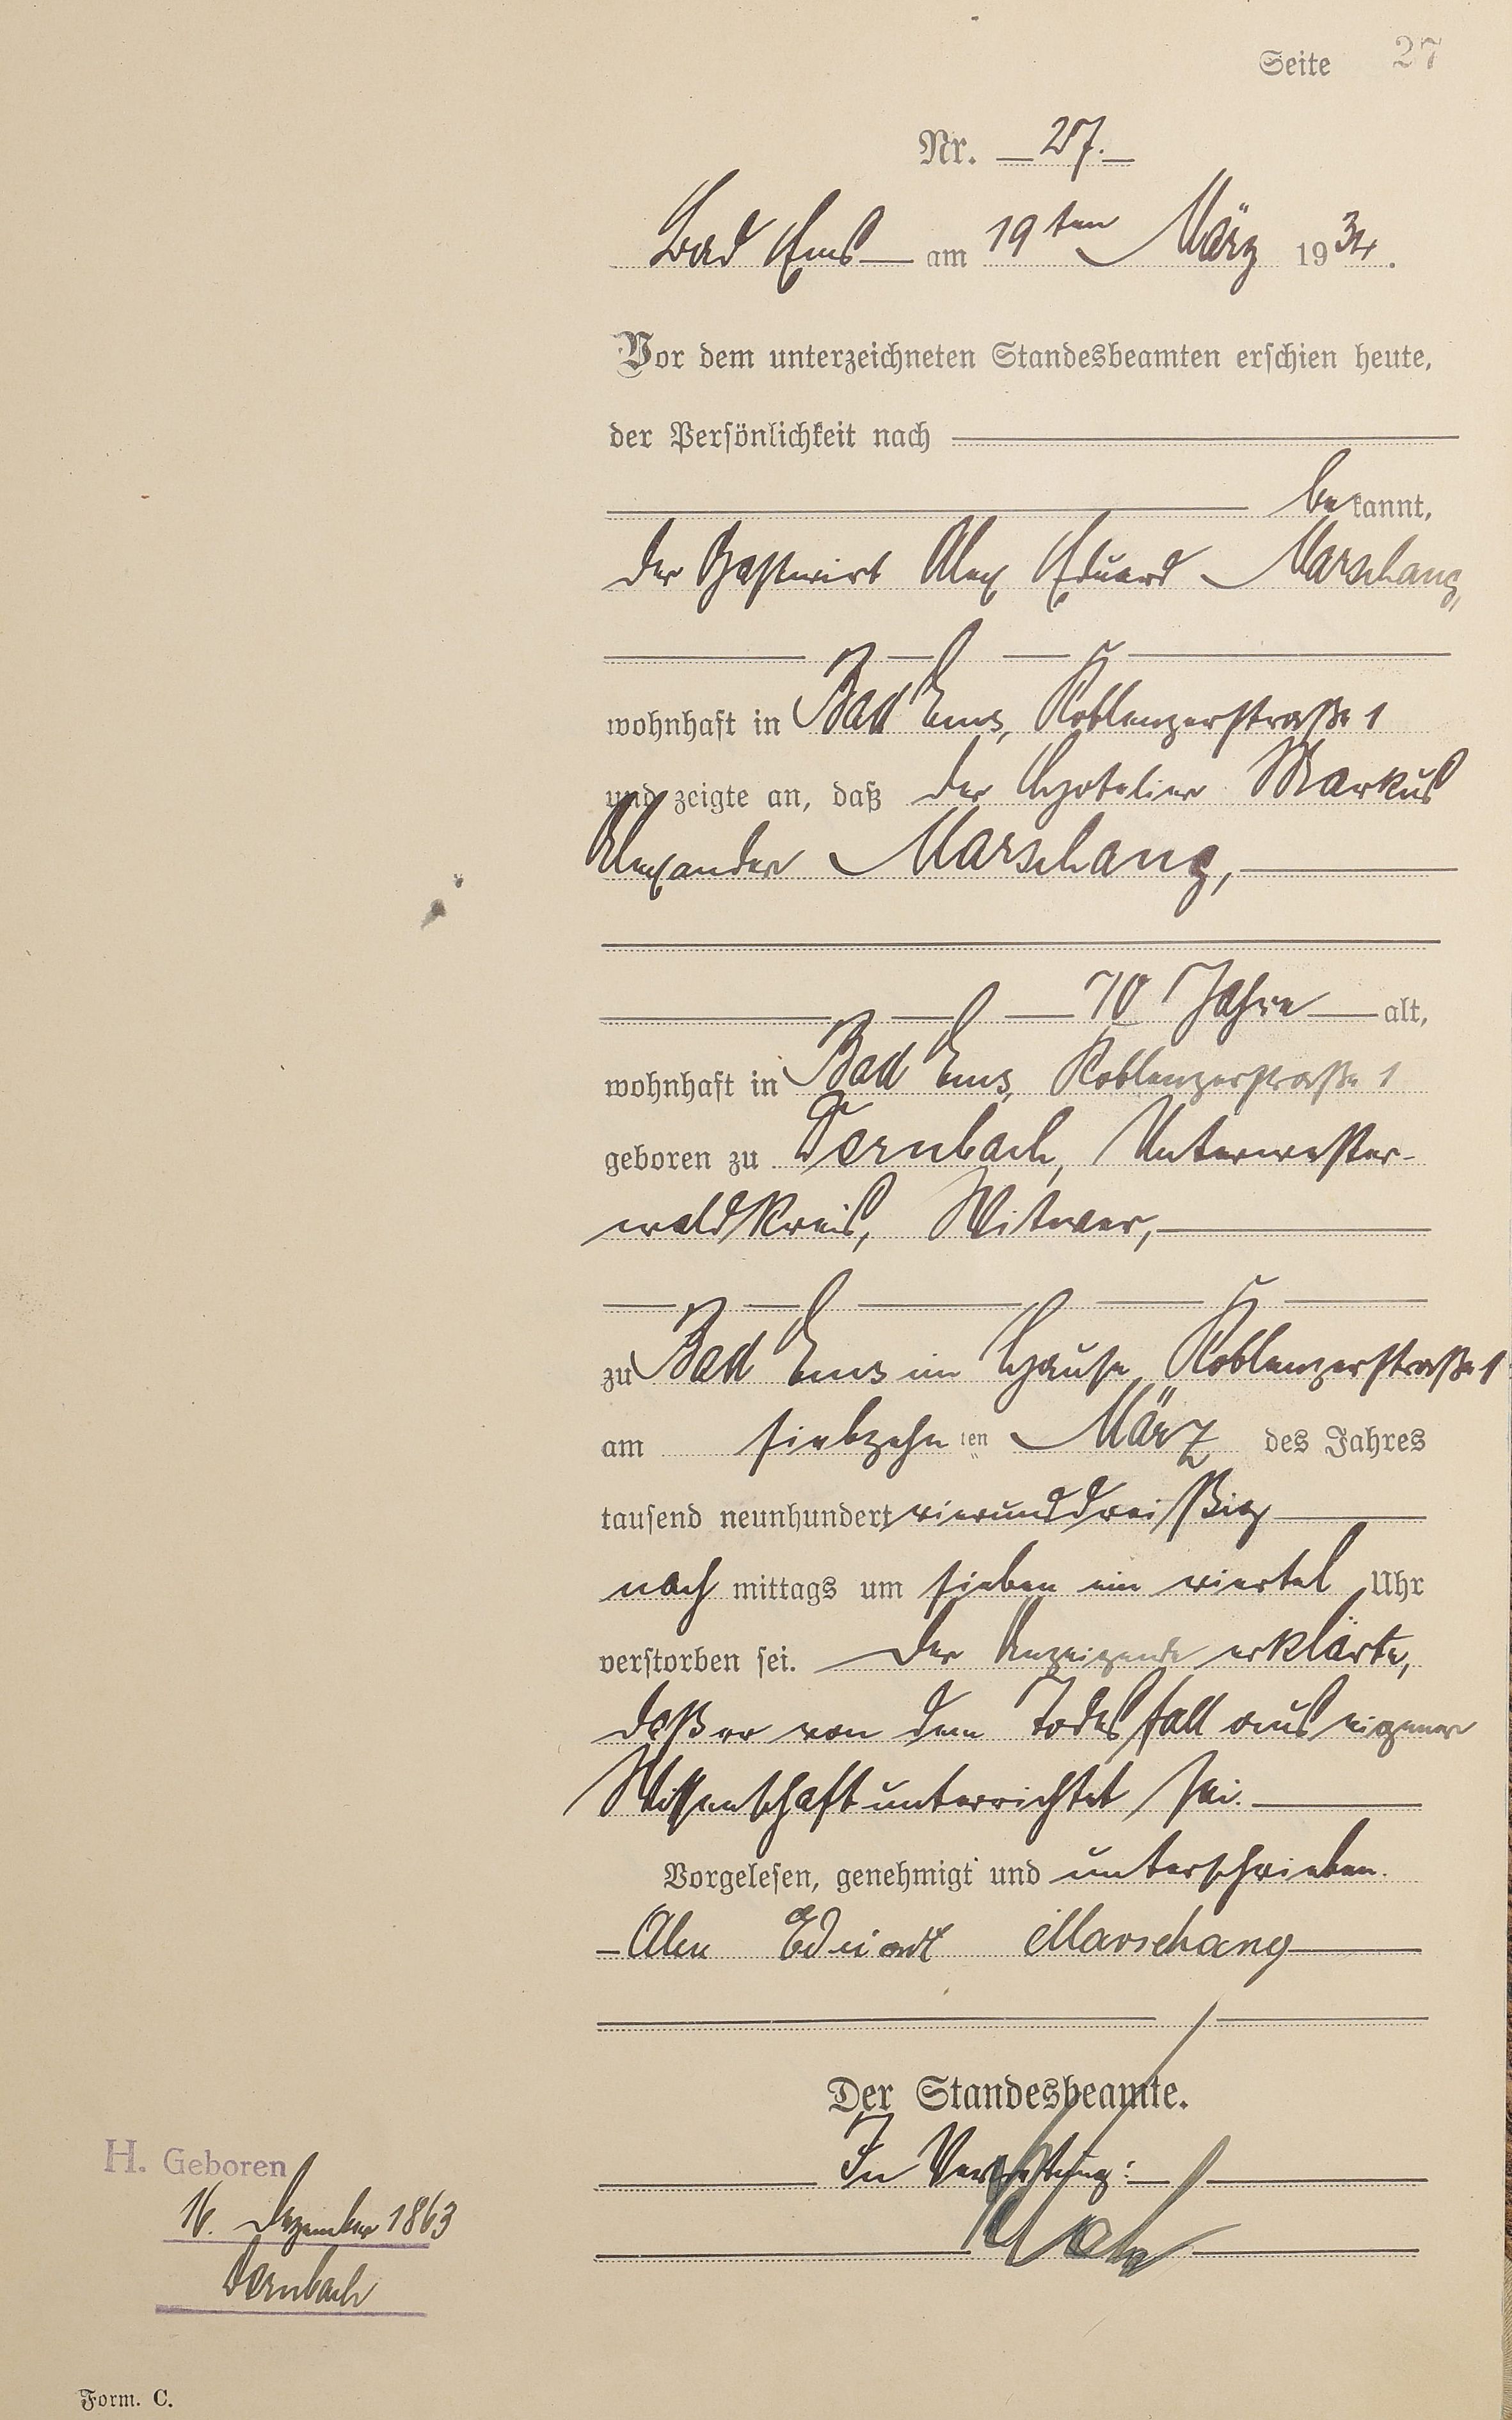 Seite 27
Nr. 27.
Bad Ems am 19ten März 1934.
Vor dem unterzeichneten Standesbeamten erschien heute,
der Persönlichkeit nach
bekannt,
der Gastwirt Alex Eduard Marschang,
wohnhaft in Bad Ems, Koblenzerstraße 1
und zeigte an, daß der Hotelier Markus
Alexander Marschang,
70 Jahre alt,
wohnhaft in Bad Ems, Koblenzerstraße 1
geboren zu Dernbach, Unterwester-
waldkreis, Witwer,
zu Bad Ems im Hause Koblenzerstraße 1
am siebzehnten März des Jahres
tausend neunhundert vierunddreißig
nachmittags um sieben ein viertel Uhr
verstorben sei. Der Anzeigende erklärte,
daß er von dem Todesfall aus eigener
Wissenschaft unterrichtet sei.
Vorgelesen, genehmigt und unterschrieben.
Alex Eduard Marschang
Der Standesbeamte.
In Vertretung:
H. Geboren
16. Dezember 1863
Dernbach
Form. C.